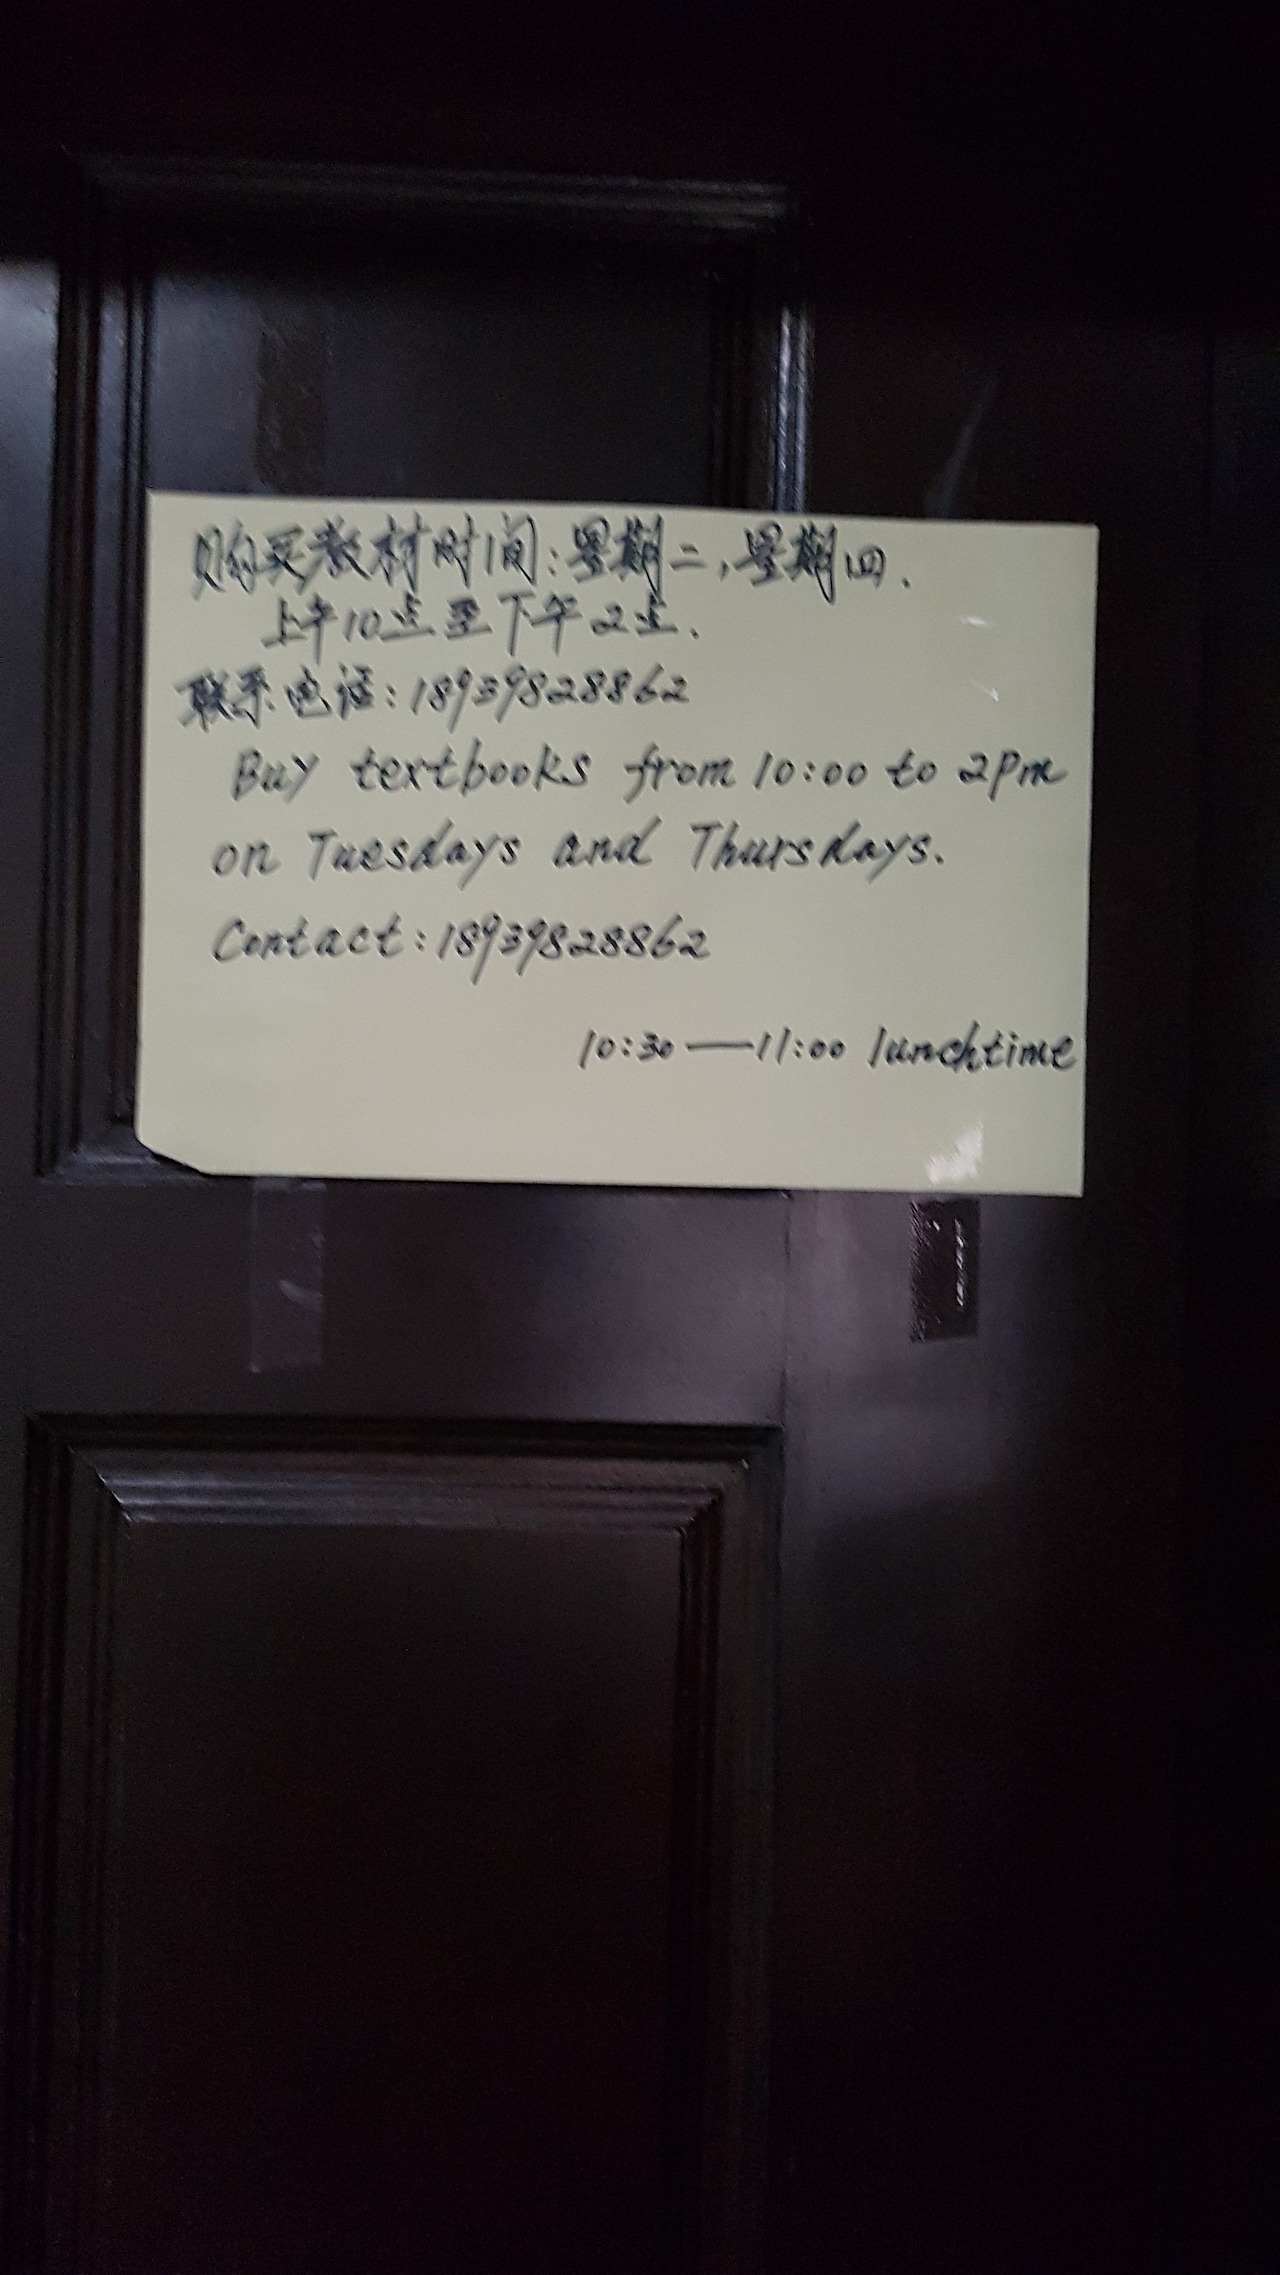 购买教材时间:星期二,星期四.
上午10点至下午2点.
联系电话:18939828862
Buy textbooks from 10:00 to 2pm
on Tuesdays and Thursdays.
Contact:18939828862
10:30—11:00 lunchtime